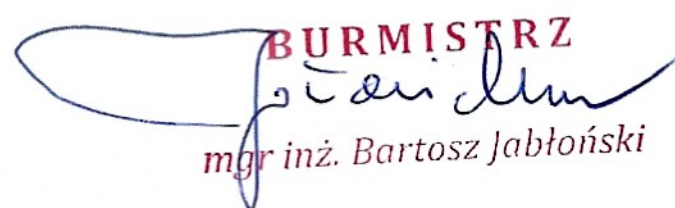 BURMISTRZ
mgr inż. Bartosz Jabłoński